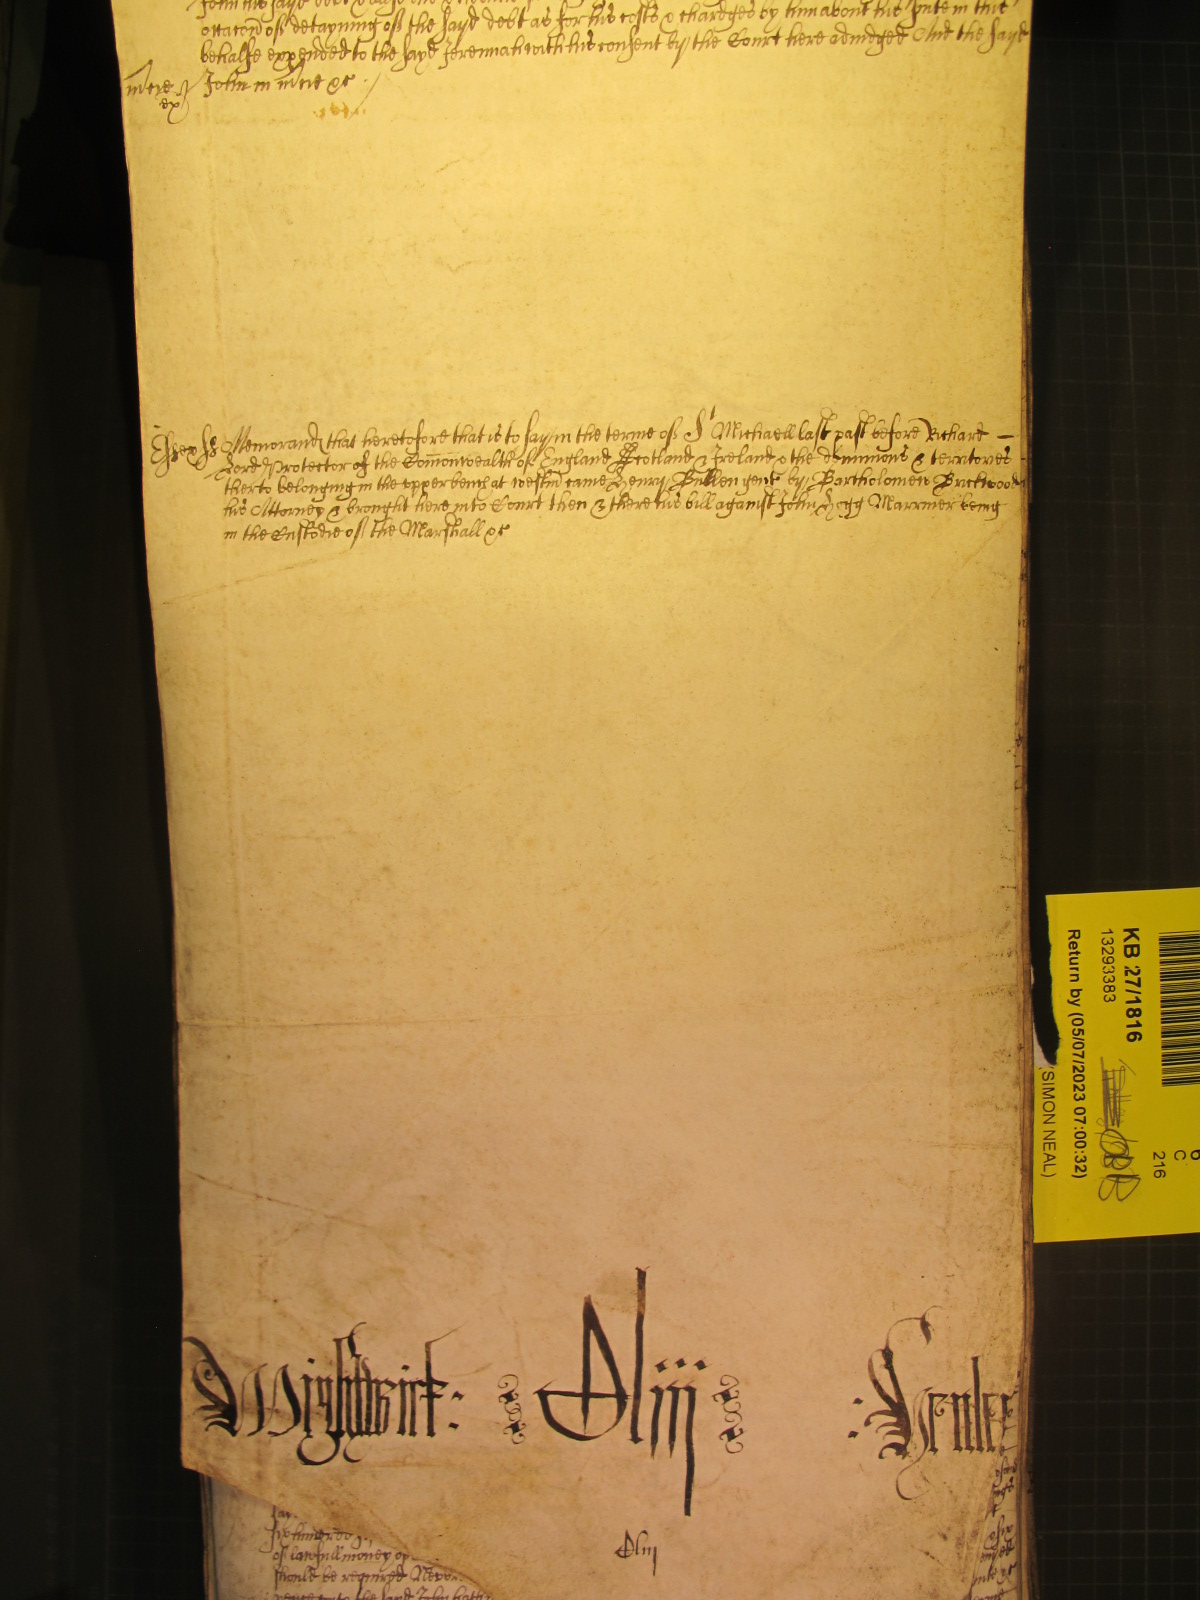 occacon of detayning of the sayd debt as for his costs & chardges by him about his sute in this
behalfe expended to the sayd Jeremiah with his consent by the Court here adiudged And the sayd
John in mcie &c
mcie
Essex ss Memorand that heretofore that is to say in the terme of St Michaell last past before Richard
Lord Protector of the Comonwealth of England Scotland & Ireland & the dominions & territories
therto belonging in the upper bench at westm came Henry Bullen gent by Bartholomew Brickwood
his Attorney & brought here into Court then & there his bill against John Hogg Marriner being
in the Custodie of the Marshall &c
Wightwick :
Dliij
: Henley
Dliij
of lawfull money of
should be required Never
the said John hath
KB 27/1816
13293383
Return by (05/07/2023 07:00:32)
(SIMON NEAL)
6
C
216